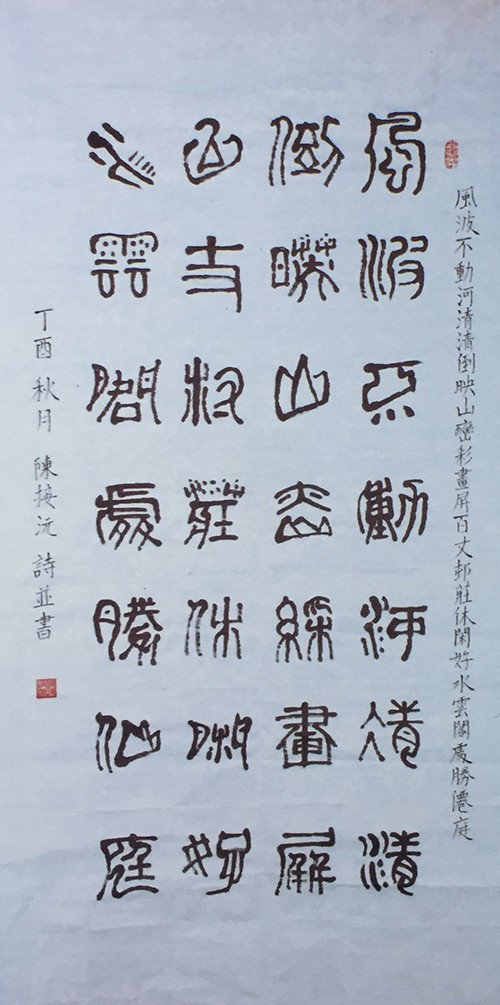 風波不動河清清倒映山巒彩畫屏百丈邨莊休閑好水雲閣處勝僊庭
風波不動河清清
倒暎山巒綵畫屏
百丈邨莊休閑好
水雲閣處勝仙庭
丁酉秋月 陳接沅 詩並書